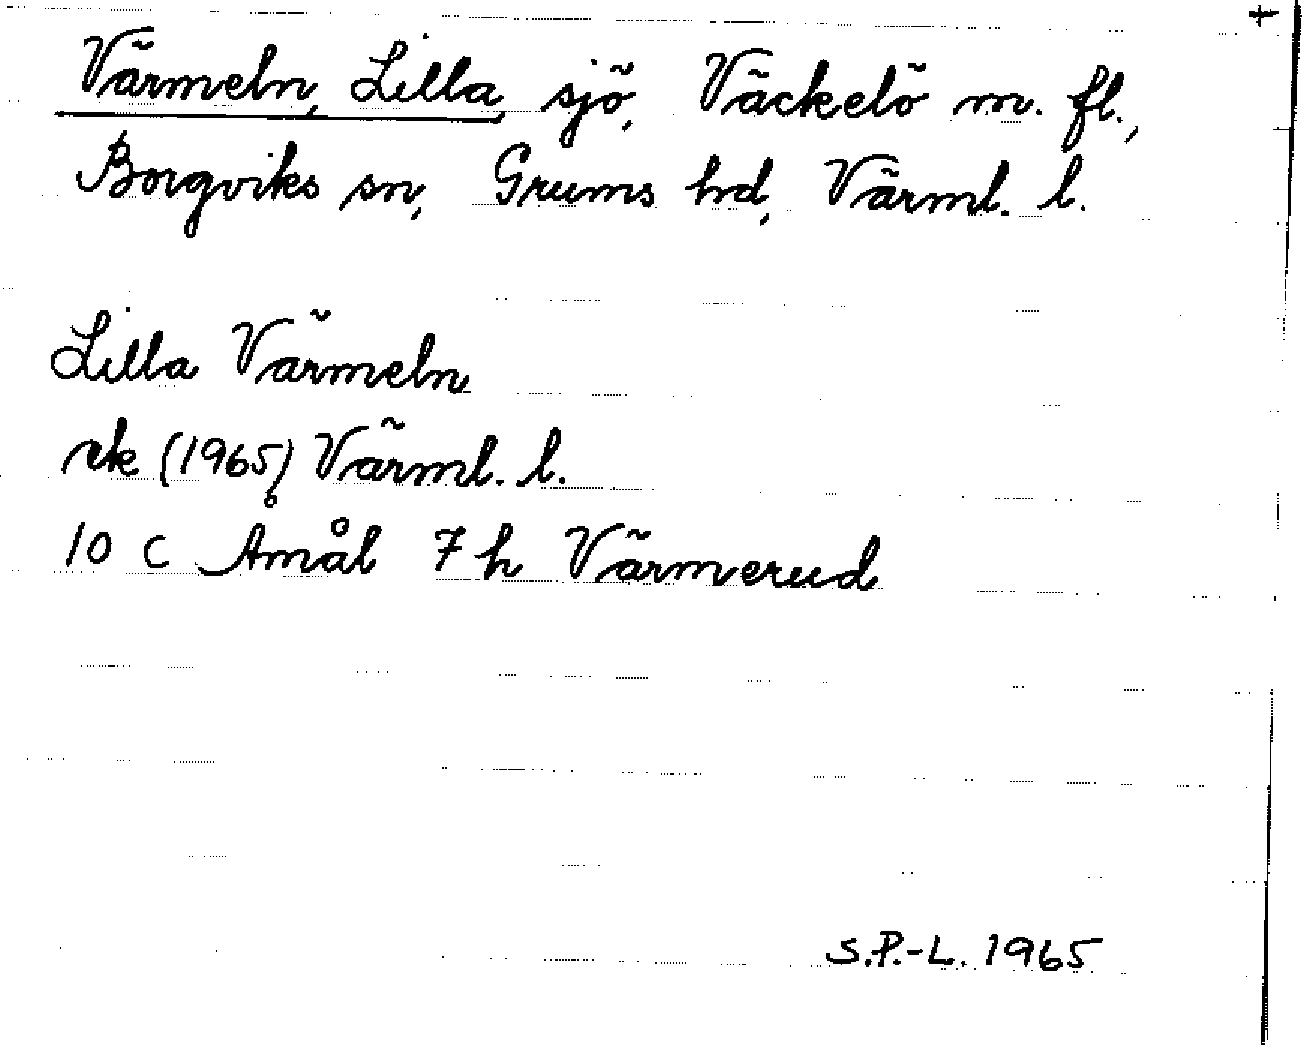 +
Värmeln, Lilla, sjö, Väckelö m. fl.,
Borgviks sn, Grums hd, Värml. l.
Lilla Värmeln
rk (1965) Värml. l.
10 C Åmål 7 h Värmerud
S.P.-L. 1965